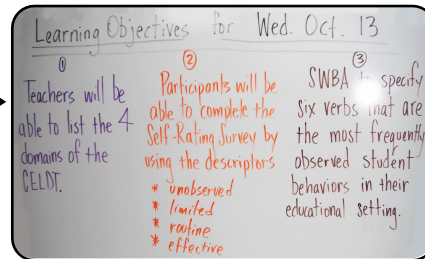 Learning Objectives for Wed. Oct. 13
①
Teachers will be
able to list the 4
domains of the
CELDT.
②
Participants will be
able to complete the
Self-Rating Survey by
using the descriptors
* unobserved
* limited
* routine
* effective
③
SWBA to specify
Six verbs that are
the most frequently
observed student
behaviors in their
educational setting.